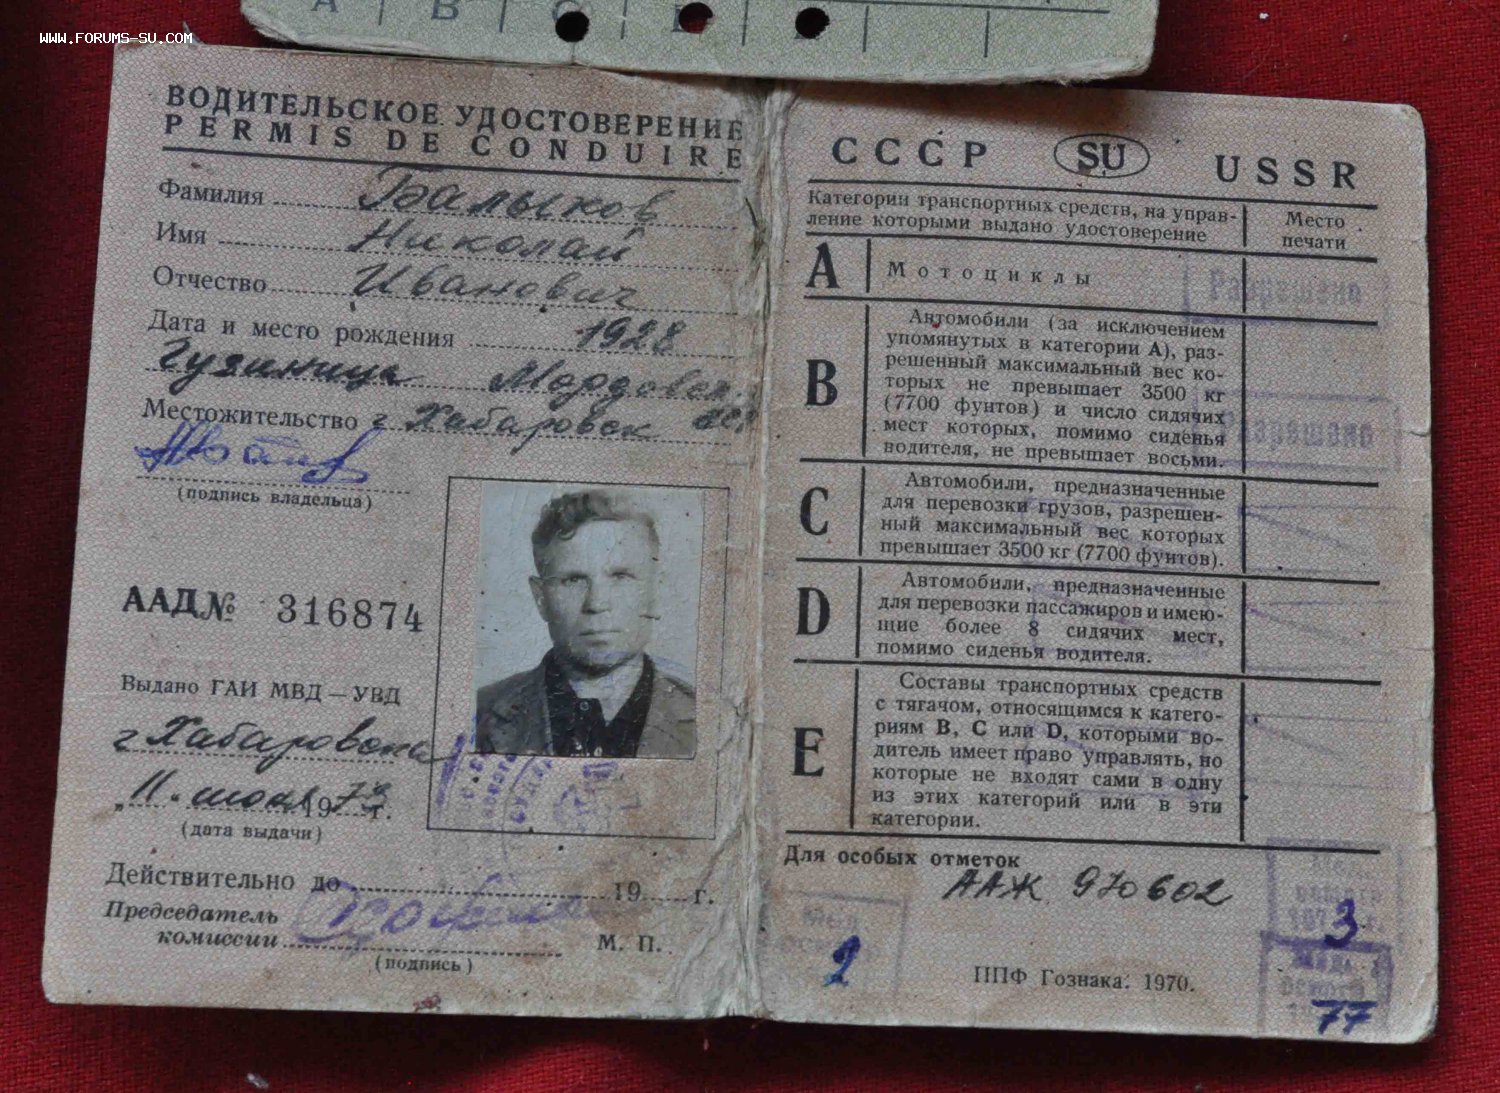 WWW.FORUMS-SU.COM
A B C E
ВОДИТЕЛЬСКОЕ УДОСТОВЕРЕНИЕ
PERMIS DE CONDUIRE
Фамилия Балыков
Имя Николай
Отчество Иванович
Дата и место рождения 1928
Мордовск.
Местожительство г Хабаровск
(подпись владельца)
ААД№ 316874
Выдано ГАИ МВД—УВД
г Хабаровска
„11. 197 г.
(дата выдачи)
Действительно до 19 г.
Председатель
комиссии М. П.
(подпись)
СССР SU USSR
Категории транспортных средств, на управ-
ление которыми выдано удостоверение
Место
печати
A Мотоциклы
Разрешено
B Автомобили (за исключением
упомянутых в категории А), раз-
решенный максимальный вес ко-
торых не превышает 3500 кг
(7700 фунтов) и число сидячих
мест которых, помимо сиденья
водителя, не превышает восьми.
Разрешено
C Автомобили, предназначенные
для перевозки грузов, разрешен-
ный максимальный вес которых
превышает 3500 кг (7700 фунтов).
D Автомобили, предназначенные
для перевозки пассажиров и имею-
щие более 8 сидячих мест,
помимо сиденья водителя.
E Составы транспортных средств
с тягачом, относящимся к катего-
риям B, C или D, которыми во-
дитель имеет право управлять, но
которые не входят сами в одну
из этих категорий или в эти
категории.
Для особых отметок
ААЖ 970602
3
2
ППФ Гознака. 1970.
77